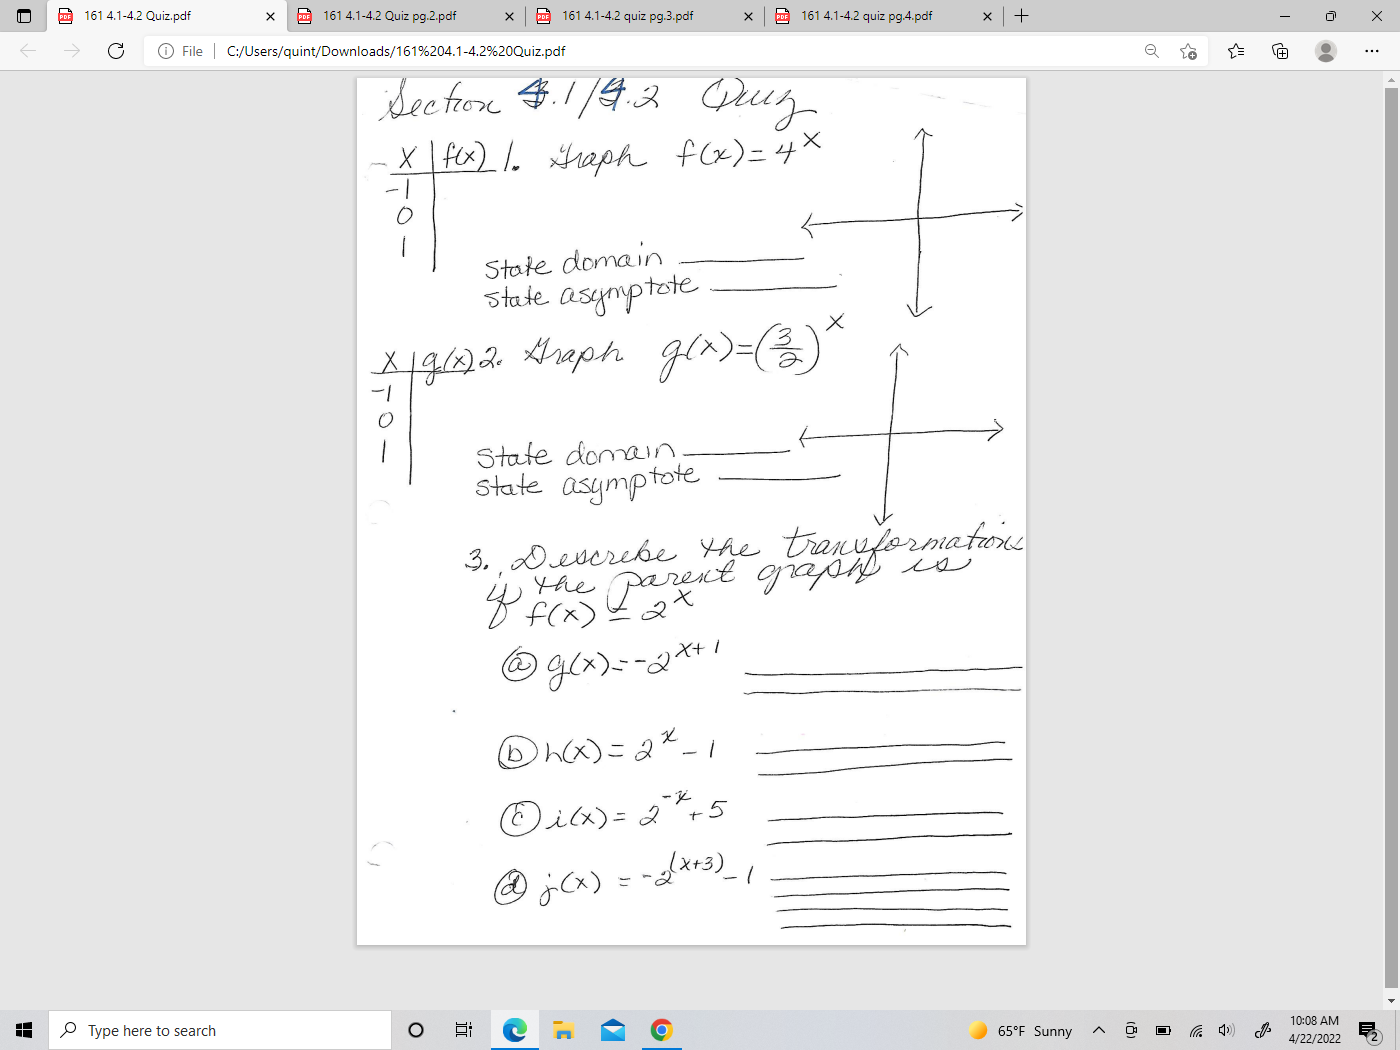 161 4.1-4.2 Quiz.pdf
161 4.1-4.2 Quiz pg.2.pdf
161 4.1-4.2 quiz pg.3.pdf
161 4.1-4.2 quiz pg.4.pdf
File
C:/Users/quint/Downloads/161%204.1-4.2%20Quiz.pdf
Section 4.1/4.2 Quiz
x f(x) 1. Graph f(x)=4^x
-1
0
1
State domain
State asymptote
x g(x) 2. Graph g(x)=(3/2)^x
-1
0
1
State domain
State asymptote
3. Describe the transformations
if the parent graph is
f(x) = 2^x
(a) g(x)=-2^x+1
(b) h(x) = 2^x - 1
(c) i(x) = 2^-x + 5
(d) j(x) = -2^(x+3) - 1
Type here to search
65°F Sunny
10:08 AM
4/22/2022
2